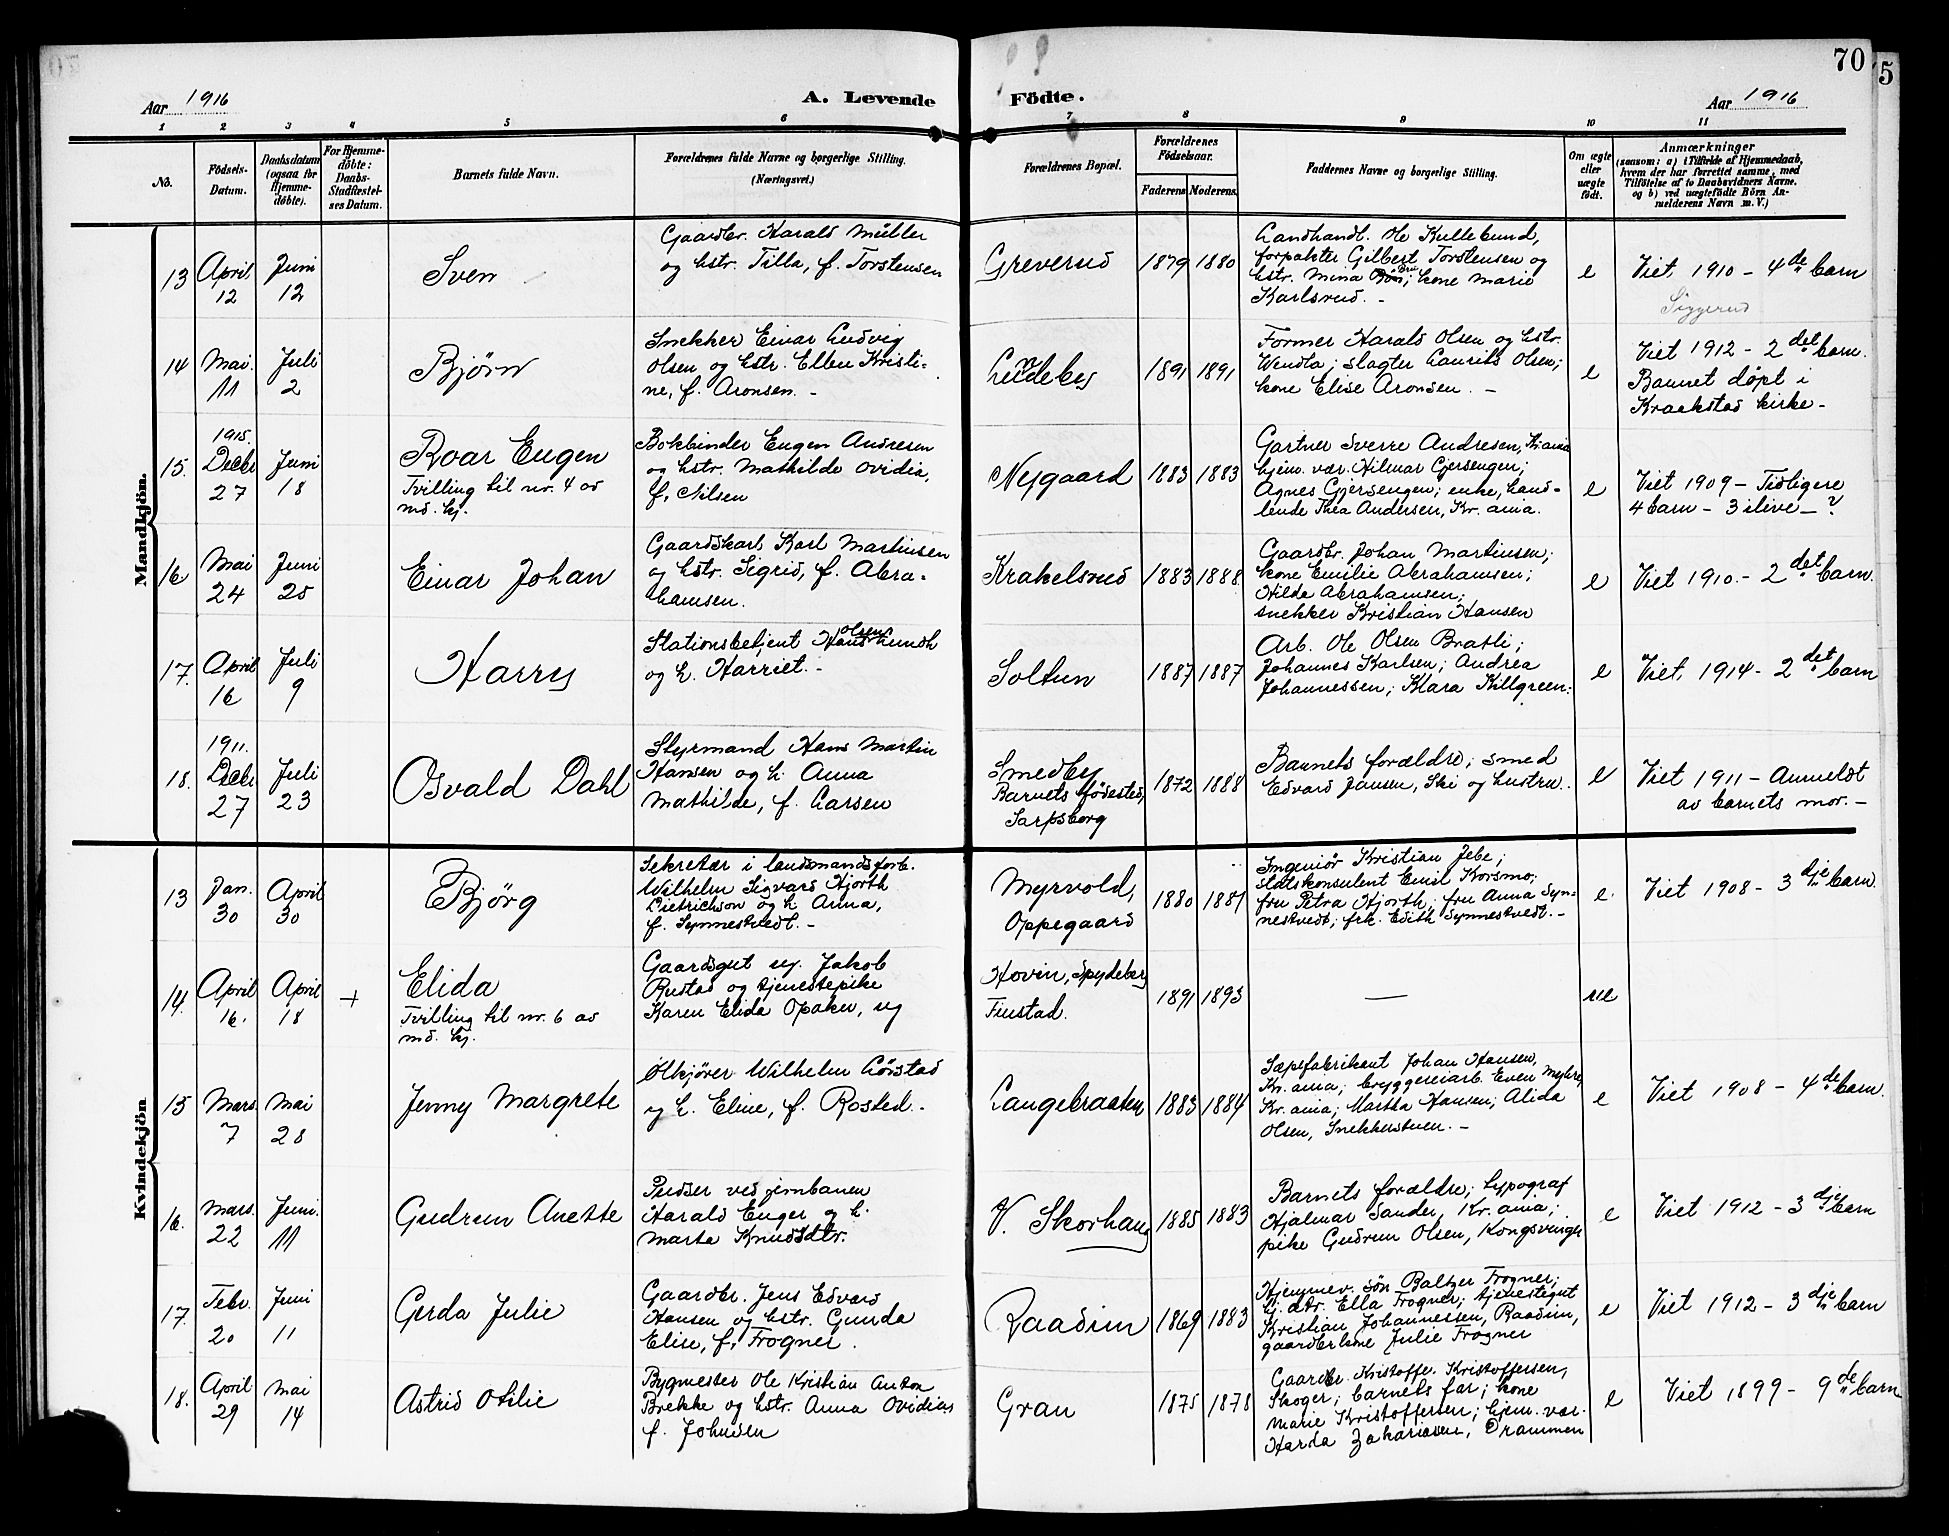 70
5
Aar 1916
A. Levende
Födte.
Aar 1916
1 2 3 4 5 6 7 8 9 10 11
No.
Födsels-
Datum.
Daabsdatum
(ogsaa for
Hjemme-
döbte).
For Hjemme-
döbte:
Daabs-
Stadfæstel-
ses Datum.
Barnets fulde Navn.
Forældrenes fulde Navne og borgerlige Stilling.
(Næringsvei.)
Forældrenes Bopæl.
Forældrenes
Födselsaar.
Faderens
Moderens.
Faddernes Navne og borgerlige Stilling.
Om ægte
eller
uægte
födt.
Anmærkninger
(saasom: a) i Tilfælde af Hjemmedaab,
hvem der har forrettet samme, med
Tilföielse af to Daabsvidners Navne.
og b) ved uægtefödte Börn An-
melderens Navn m. V.)
Mandkjön.
13
April
12
Juni
12
Sven
Gaardbr. Harald Müller
og hstr. Tilla, f. Torstensen
Greverud
1879
1880
Landhandl. Ole Kullebund,
forpakter Gilbert Torstensen og
hstr. Mina; kone Marie
Karlsrud. -
e
Viet. 1910 - 4de barn
Siggerud
14
Mai.
11
Juli
2
Bjørn
Snekker Einar Ludvig
Olsen og hstr. Ellen Kristi-
ne, f. Aronsen. -
Lundeby
1891
1891
Former Harald Olsen og hstr.
Wendla; slagter Laurits Olsen;
kone Elise Aronsen. -
e
Viet 1912 - 2det barn.
Barnet døpt i
Kraakstad kirke -
15.
1915.
Decbr
27
Juni
18
Roar Eugen
Tvilling til nr. 4 av
md. kj.
Bokbinder Eugen Andresen
og hstr. Mathilde Ovidia,
f. Nilsen
Nygaard
1883
1883
Gartner Sverre Andresen, Kr.ania
hjem. vær. Hilmar Gjersengen;
Agnes Gjersengen; enke, hand-
lende Thea Andersen, Kr. ania.
e
Viet 1909 - Tidligere
4 barn - 3 ilive - ?
16
Mai
24
Juni
25
Einar Johan
Gaardskarl Karl Martinsen
og hstr. Sigrid, f. Abra-
hamsen.
Krakelsrud
1883
1888
Gaardbr. Johan Martinsen;
kone Emilie Abrahamsen;
Hilda Abrahamsen;
snekker Kristian Hansen
e
Viet 1910. - 2det barn.
17.
April
16
Juli
9
Harry
Stationsbetjent Hans Olsen Lundh
og h. Harriet. -
Soltun
1887
1887
Arb. Ole Olsen Bratli;
Johannes Karlsen; Andrea
Johannessen; Klara Killgreen.
e
Viet. 1914 - 2det barn
18.
1911.
Decbr
27
Juli
23
Osvald Dahl
Styrmand Hans Martin
Hansen og h. Anna
Mathilde, f. Larsen
Smedby
Barnets fødested,
Sarpsborg
1872
1888
Barnets forældre; smed
Edvard Jansen, Ski og hustru.
e
Viet 1911 - Anmeldt
av barnets mor. -
Kvindekjön
13
Jan.
30
April
30
Bjørg
Sekretær i landsmandsforb.
Wilhelm Sigvard Hjorth
Dietrichson og h. Anna,
f. Synnestvedt. -
Myrvold,
Oppegaard
1880
1881
Ingeniør Kristian Jebe;
statskonsulent Emil Korsmo;
fru Petra Hjorth; fru Anna Syn-
nestvedt; frk. Edith Synnestvedt. -
e.
Viet 1908 - 3dje barn.
14.
April
16.
April
18
+
Elida
Tvilling til nr. 6 av
md. kj.
Gaardsgut ug. Jakob
Rustad og tjenestepike
Karen Elida Opaker, ug
Hovin, Spydeberg
Finstad.
1891
1893
-
ue
15
Mars
7
Mai
28
Jenny Margrete
Ølkjører Wilhelm Lørstad
og h. Eline, f. Rosted. -
Langebraaten
1883
1884
Sæpefabrikant Johan Hansen,
Kr. ania; bryggeriarb. Even Myhre,
Kr. ania; Martha Hansen; Alida
Olsen, Snekkerstuen. -
e
Viet 1908 - 4de barn.
16.
Mars.
22
Juni.
11
Gudrun Anette
Pudser ved jernbanen
Harald Enger og h.
Marta Knudsdtr.
V. Skorhaug
1885
1883
Barnets forældre; typograf
Hjalmar Sander, Kr. ania;
pike Gudrun Olsen, Kongsvinger
e
Viet 1912 - 3dje barn
17.
Febr.
20
Juni
11
Gerda Julie
Gaardbr. Jens Edvard
Hansen og hstr. Gunda
Elise, f. Frogner.
Raadim
1869
1883
Hjemmev. søn Baltzer Frogner;
Gj. dtr. Ella Frogner; tjenestegut
Kristian Johannessen, Raadim,
gaardbr.kone Julie Frogner
e
Viet 1912 - 3dje barn
18.
April
29
Mai
14
Astrid Otilie
Bygmester Ole Kristian Anton
Brekke og hstr. Anna Ovidia,
f. Johnsen
Gran
1875
1878
Gaardbr. Kristoffer Kristoffersen,
Skoger; barnets far; kone
Marie Kristoffersen; hjem. vær.
Harda Zakariasen, Drammen
e
Viet 1899 - 9de barn